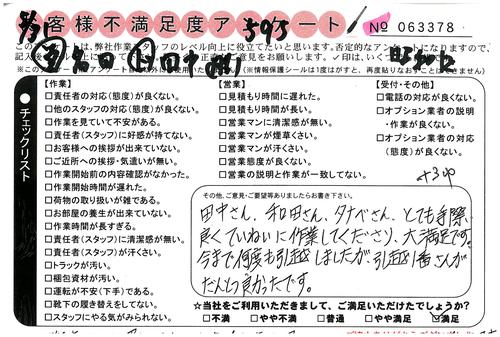 お客様不満足度アンケート
№ 063378
このアンケートは、弊社作業スタッフのレベル向上に役立てたいと思います。否定的なアンケートになりますので、
✓印は、いくつ
(※情報保護シールは1度がすと、再度貼りなおすことはできません)
チェックリスト
【作業】
□責任者の対応(態度)が良くない。
□他のスタッフの対応(態度)が良くない。
□作業を見ていて不安がある。
□責任者(スタッフ)に好感が持てない。
□お客様への挨拶が出来ていない。
□ご近所への挨拶・気遣いが無い。
□作業開始前の内容確認がなかった。
□作業開始時間が遅れた。
□荷物の取り扱いが雑である。
□お部屋の養生が出来ていない。
□作業時間が長すぎる。
□責任者(スタッフ)に清潔感が無い。
□責任者(スタッフ)が汗くさい。
□トラックが汚い。
□梱包資材が汚い。
□運転が不安(下手)である。
□靴下の履き替えをしてない。
□スタッフにやる気がみられない。
【営業】
□見積もり時間に遅れた。
□見積もり時間が長い。
□営業マンに清潔感が無い。
□営業マンが煙草くさい。
□営業マンが汗くさい。
□営業態度が良くない。
□営業の説明と作業が一致してない。
【受付・その他】
□電話の対応が良くない。
□オプション業者の説明
・作業が良くない。
□オプション業者の対応
(態度)が良くない。
その他、ご意見・ご要望等ありましたらお書き下さい。
田中さん、和田さん、タナベさん、とても手際
良くていねいに作業してくださり、大満足です。
今まで何度も引越しましたが、引越1番さんが
だんとつ良かったです。
☆当社をご利用いただきまして、ご満足いただけたでしょうか?
□不満 □やや不満 □普通 □やや満足 ☑満足